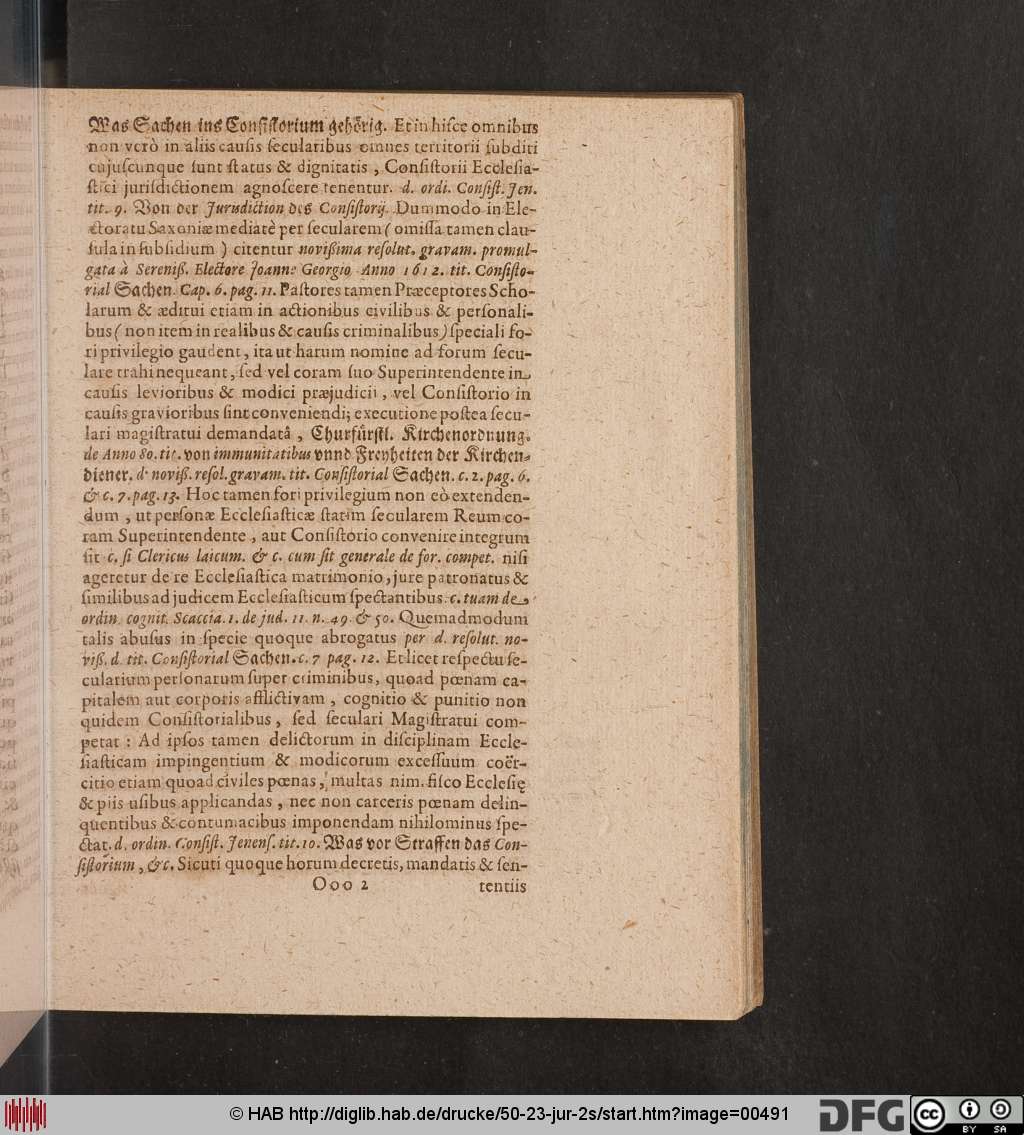 Was Sachen ins Consistorium gehörig. Et in hisce omnibus
non verò in aliis causis secularibus omnes territorii subditi
cujuscunque sunt status & dignitatis, Consistorii Ecclesia-
stici jurisdictionem agnoscere tenentur. d. ordi. Consist. Jen.
tit. 9. Von der Jurisdiction des Consistorij. Dummodo in Ele-
ctoratu Saxoniæ mediatè per secularem (omissa tamen clau-
sula in subsidium) citentur novißima resolut. gravam. promul-
gata à Sereniß. Electore Joanne Georgio Anno 1612. tit. Consisto-
rial Sachen. Cap. 6. pag. 11. Pastores tamen Præceptores Scho-
larum & æditui etiam in actionibus civilibus & personali-
bus (non item in realibus & causis criminalibus) speciali fo-
ri privilegio gaudent, ita ut harum nomine ad forum secu-
lare trahi nequeant, sed vel coram suo Superintendente in
causis levioribus & modici præjudicii, vel Consistorio in
causis gravioribus sint conveniendi; executione postea secu-
lari magistratui demandatâ, Churfürstl. Kirchenordnung.
de Anno 80. tit. von immunitatibus vnnd Freyheiten der Kirchen-
diener. d. noviß. resol. gravam. tit. Consistorial Sachen. c. 2. pag. 6.
& c. 7. pag. 13. Hoc tamen fori privilegium non eò extenden-
dum, ut personæ Ecclesiasticæ statim secularem Reum co-
ram Superintendente, aut Consistorio convenire integrum
sit c. si Clericus laicum. & c. cum sit generale de for. compet. nisi
ageretur de re Ecclesiastica matrimonio, jure patronatus &
similibus ad judicem Ecclesiasticum spectantibus. c. tuam de
ordin. cognit. Scaccia. 1. de jud. 11. n. 49. & 50. Quemadmodum
talis abusus in specie quoque abrogatus per d. resolut. no-
viß. d. tit. Consistorial Sachen. c. 7 pag. 12. Et licet respectu se-
cularium personarum super criminibus, quoad pœnam ca-
pitalem aut corporis afflictivam, cognitio & punitio non
quidem Consistorialibus, sed seculari Magistratui com-
petat: Ad ipsos tamen delictorum in disciplinam Eccle-
siasticam impingentium & modicorum excessuum coër-
citio etiam quoad civiles pœnas, multas nim. fisco Ecclesię
& piis usibus applicandas, nec non carceris pœnam delin-
quentibus & contumacibus imponendam nihilominus spe-
ctat. d. ordin. Consist. Jenens. tit. 10. Was vor Straffen das Con-
sistorium, &c. Sicuti quoque horum decretis, mandatis & sen-
Ooo 2 tentiis
© HAB http://diglib.hab.de/drucke/50-23-jur-2s/start.htm?image=00491
DFG
cc BY SA